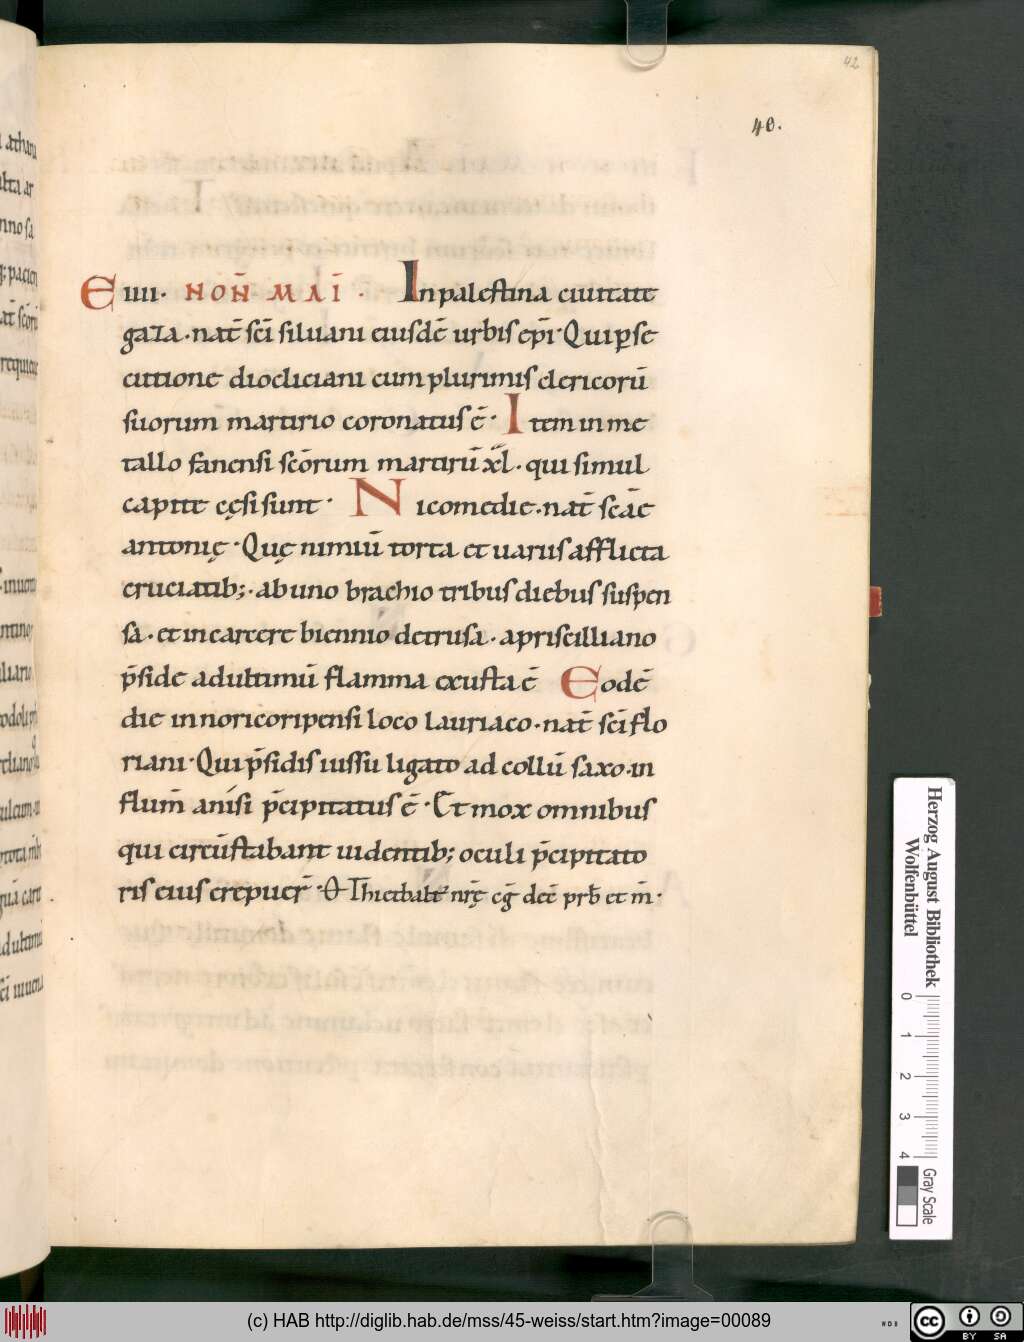 42
40.
E iiii· NOÑ MAĪ · In palestina ciuitate
gaza · nat̄ sc̄i siluani eiusdē urbis ep̄i· Qui ꝑse
cutione diocliciani cum plurimis clericorū
suorum martirio coronatus ē· Item in me
tallo fanensi sc̄orum martirū xl̄· qui simul
capite cęsi sunt· Nicomedie · nat̄ sc̄ae
antonię · Quę nimiū torta et uariis afflicta
cruciatib; · ab uno brachio tribus diebus suspen
sa · et in carcere biennio detrusa · a priscilliano
p̄side ad ultimū flamma exusta ē Eodē
die in noricoripensi loco lauriaco · nat̄ sc̄i flo
riani· Qui p̄sidis iussu ligato ad collū saxo · in
flum̄ anisi p̄cipitatus ē · Et mox omnibus
qui circūstabant uidentib; oculi p̄cipitato
ris eius crepuer̄ · Thietbalt nrę̄ dec̄ prb̄ et m̄ ·
Herzog August Bibliothek
Wolfenbüttel
0 1 2 3 4
Gray Scale
(c) HAB http://diglib.hab.de/mss/45-weiss/start.htm?image=00089
cc BY SA